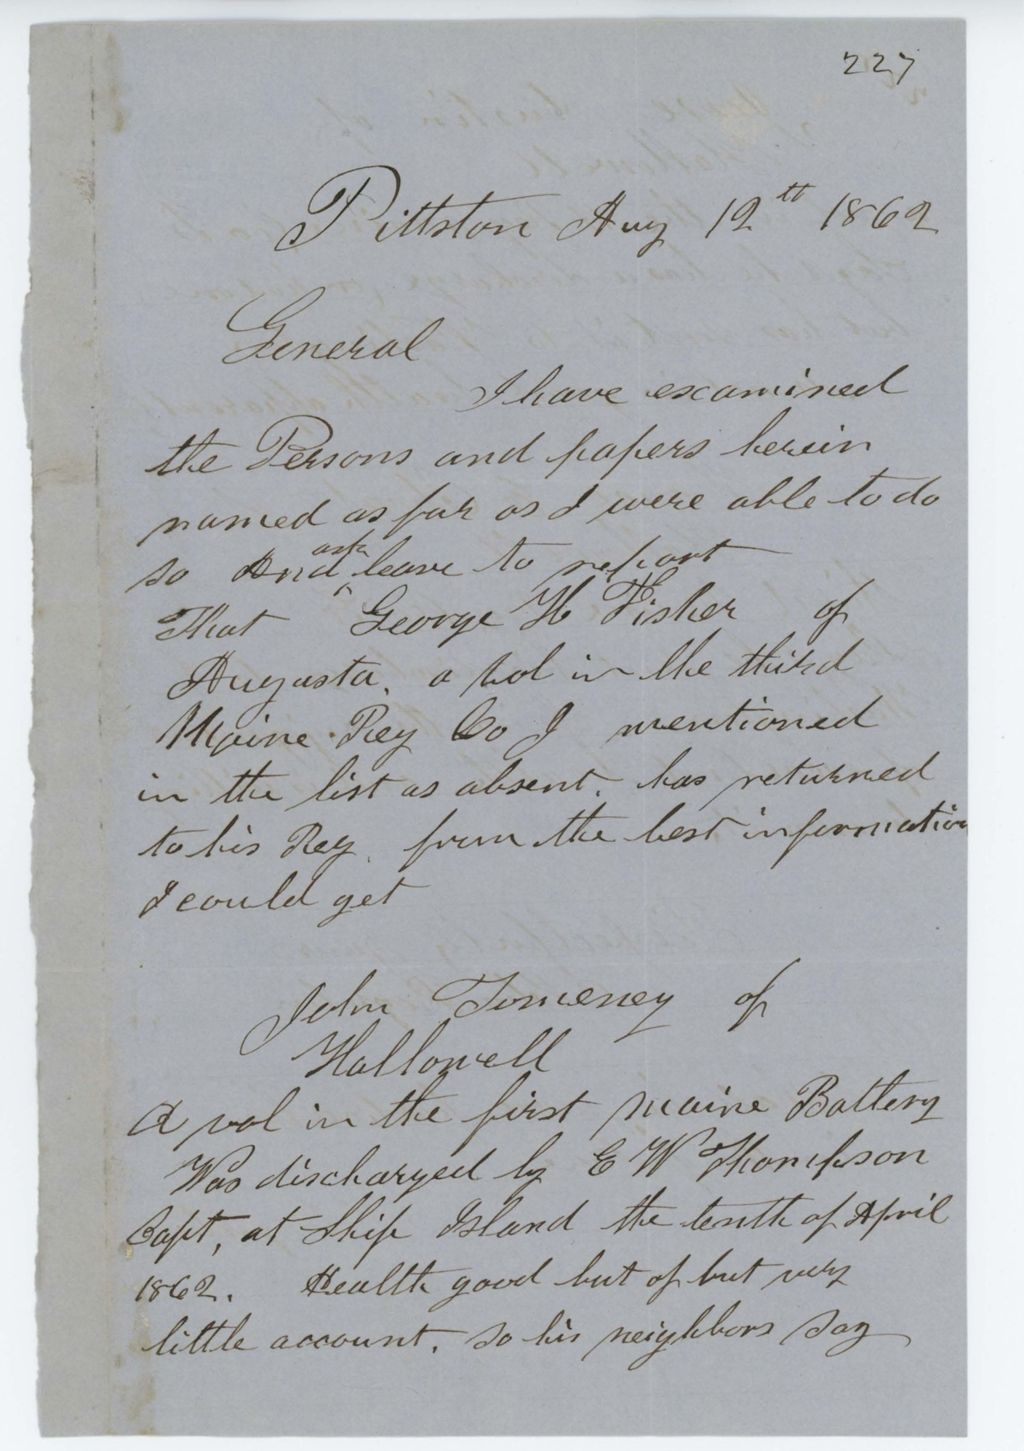 227
Pittston Aug 12th 1862
General
I have examined
the Persons and papers herein
named as far as I were able to do
so And ask leave to report
That George H Fisher of
Augusta, a vol in the third
Maine Reg Co I mentioned
in the list as absent, has returned
to his Reg, from the best information
I could get
John Tomeney of
Hallowell
A vol in the first Maine Battery
Was discharged by E W Thompson
Capt, at Ship Island the tenth of April
1862. Health good but of but very
little account, so his neighbors say